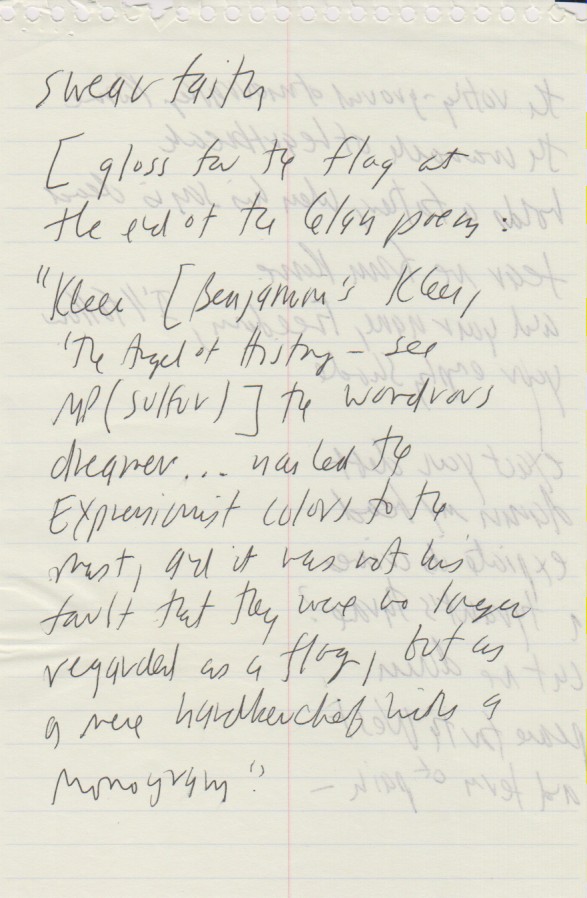 swear faith
[ gloss for the flag at
the end of the Celan poem :
"Klee [ Benjamin's Klee,
'The Angel of History – see
MP (SULFUR) ] the wondrous
dreamer... nailed the
Expressionist colors to the
mast, and it was not his
fault that they were no longer
regarded as a flag, but as
a mere handkerchief with a
monogram".